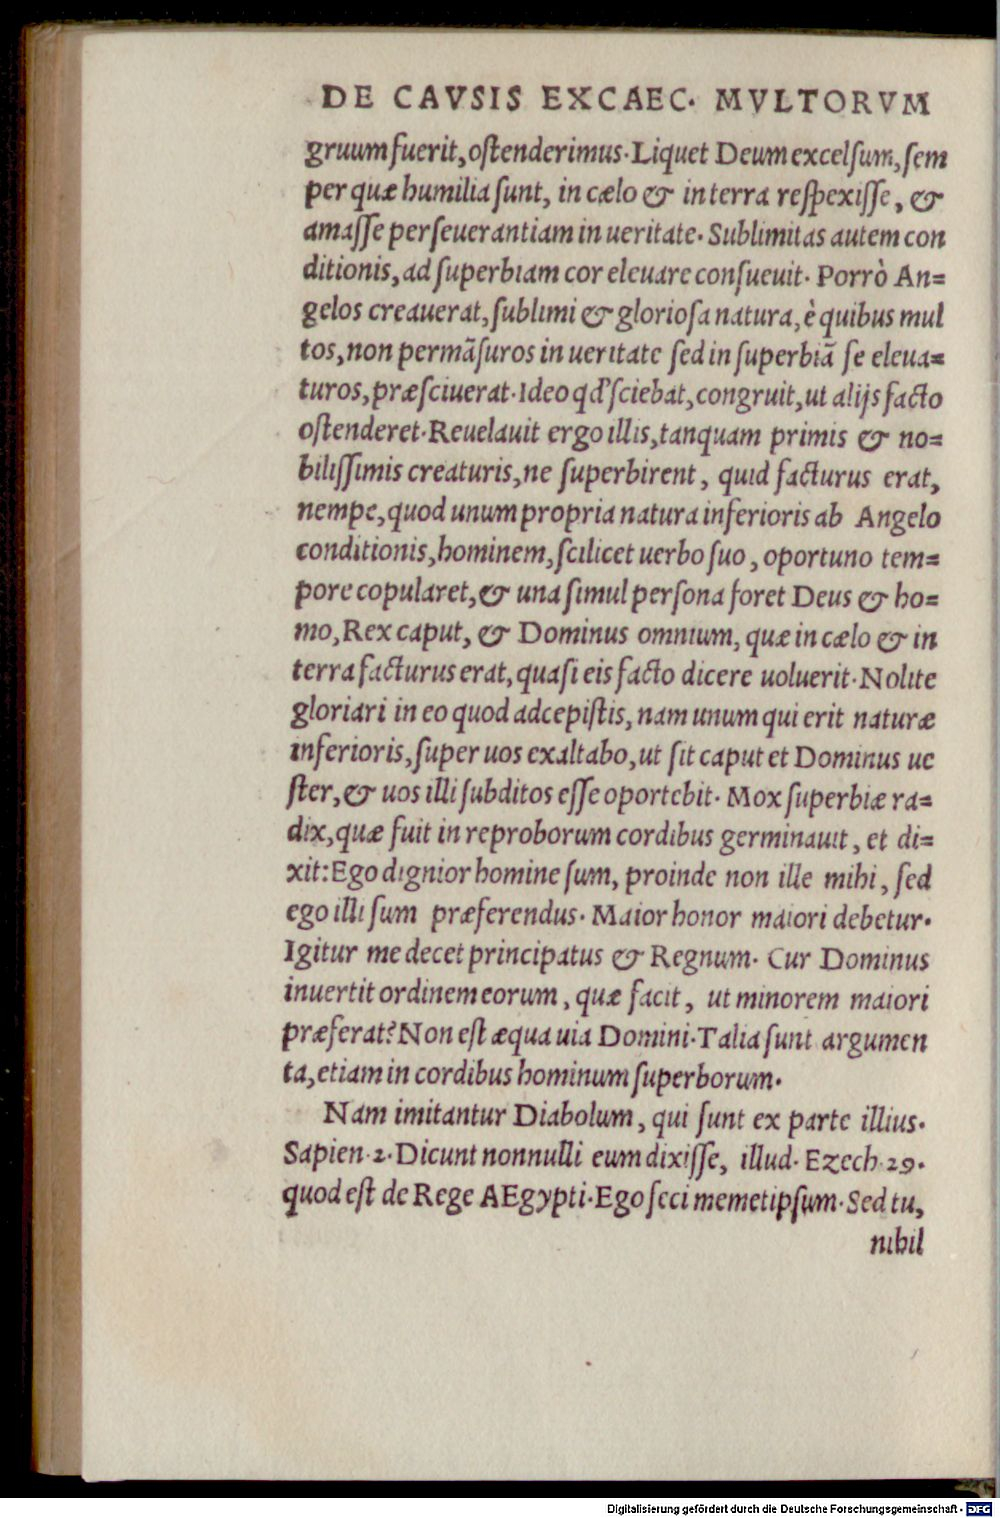 DE CAVSIS EXCAEC. MVLTORVM
gruum fuerit, oſtenderimus. Liquet Deum excelſum, ſem
per quæ humilia ſunt, in cælo & in terra reſpexiſſe, &
amaſſe perſeuerantiam in ueritate. Sublimitas autem con
ditionis, ad ſuperbiam cor eleuare conſueuit. Porrò An=
gelos creauerat, ſublimi & glorioſa natura, è quibus mul
tos, non permãſuros in ueritate ſed in ſuperbiã ſe eleua=
turos, præſciuerat. Ideo qd' ſciebat, congruit, ut alijs facto
oſtenderet. Reuelauit ergo illis, tanquam primis & no=
biliſſimis creaturis, ne ſuperbirent, quid facturus erat,
nempe, quod unum propria natura inferioris ab Angelo
conditionis, hominem, ſcilicet uerbo ſuo, oportuno tem=
pore copularet, & una ſimul perſona foret Deus & ho=
mo, Rex caput, & Dominus omnium, quæ in cælo & in
terra facturus erat, quaſi eis facto dicere uoluerit. Nolite
gloriari in eo quod adcepiſtis, nam unum qui erit naturæ
inferioris, ſuper uos exaltabo, ut ſit caput et Dominus ue
ſter, & uos illi ſubditos eſſe oportebit. Mox ſuperbiæ ra=
dix, quæ fuit in reproborum cordibus germinauit, et di=
xit: Ego dignior homine ſum, proinde non ille mihi, ſed
ego illi ſum præferendus. Maior honor maiori debetur.
Igitur me decet principatus & Regnum. Cur Dominus
inuertit ordinem eorum, quæ facit, ut minorem maiori
præferat? Non eſt æqua uia Domini. Talia ſunt argumen
ta, etiam in cordibus hominum ſuperborum.
Nam imitantur Diabolum, qui ſunt ex parte illius.
Sapien. 2. Dicunt nonnulli eum dixiſſe, illud. Ezech. 29.
quod eſt de Rege AEgypti. Ego feci memetipſum. Sed tu,
nihil
Digitalisierung gefördert durch die Deutsche Forschungsgemeinschaft - DFG